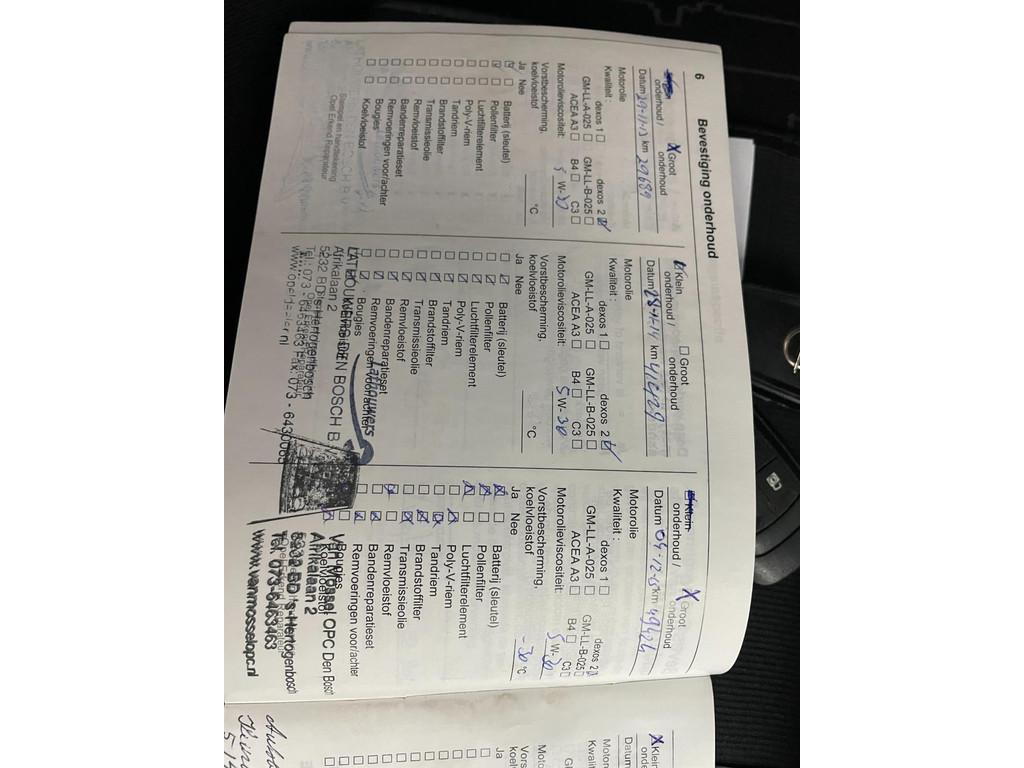 6 Bevestiging onderhoud
X Groot
onderhoud / onderhoud
Datum 29-11-13 km 29689
Motorolie
Kwaliteit : dexos 1 dexos 2
GM-LL-A-025 GM-LL-B-025
ACEA A3 B4 C3
Motorolieviscositeit: 5 W-30
Vorstbescherming,
koelvloeistof °C
Ja Nee
Batterij (sleutel)
Pollenfilter
Luchtfilterelement
Poly-V-riem
Tandriem
Brandstoffilter
Transmissieolie
Remvloeistof
Bandenreparatieset
Remvoeringen voor/achter
Bougies
Koelvloeistof
Stempel en handtekening
Opel Erkend Reparateur
Klein Groot
onderhoud / onderhoud
Datum 28-11-14 km 41229
Motorolie
Kwaliteit : dexos 1 dexos 2
GM-LL-A-025 GM-LL-B-025
ACEA A3 B4 C3
Motorolieviscositeit: 5 W-30
Vorstbescherming,
koelvloeistof °C
Ja Nee
Batterij (sleutel)
Pollenfilter
Luchtfilterelement
Poly-V-riem
Tandriem
Brandstoffilter
Transmissieolie
Remvloeistof
Bandenreparatieset
Remvoeringen voor/achter
Bougies
Lathouwers
LATHOUWERS DEN BOSCH B.
Afrikalaan 2
5232 BD 's-Hertogenbosch
Tel.: 073 - 6463463 Fax: 073 - 6430065
Klein X Groot
onderhoud / onderhoud
Datum 04-12-15 km 49424
Motorolie
Kwaliteit : dexos 1 dexos 2
GM-LL-A-025 GM-LL-B-025
ACEA A3 B4 C3
Motorolieviscositeit: 5 W-30
Vorstbescherming,
koelvloeistof -30 °C
Ja Nee
Batterij (sleutel)
Pollenfilter
Luchtfilterelement
Poly-V-riem
Tandriem
Brandstoffilter
Transmissieolie
Remvloeistof
Bandenreparatieset
Remvoeringen voor/achter
Bougies
Koelvloeistof
Van Mossel OPC Den Bosch
Afrikalaan 2
5232 BD 's-Hertogenbosch
Tel. 073-6463463
www.vanmosselopc.nl
X Klein
onderhoud
Datum
Motor
Kwalit
Moto
Vors
koel
Ja